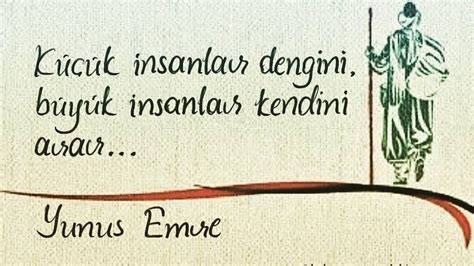 Küçük insanlar dengini,
büyük insanlar kendini
arar...
Yunus Emre